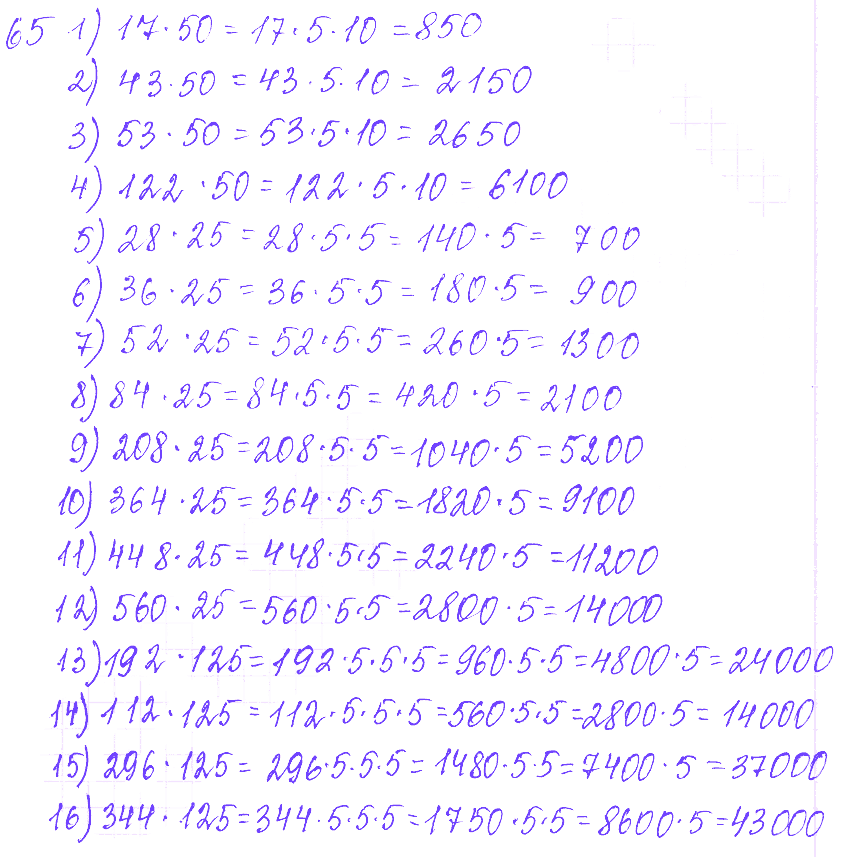 65 1) 17·50 = 17·5·10 = 850
2) 43·50 = 43·5·10 = 2150
3) 53·50 = 53·5·10 = 2650
4) 122·50 = 122·5·10 = 6100
5) 28·25 = 28·5·5 = 140·5 = 700
6) 36·25 = 36·5·5 = 180·5 = 900
7) 52·25 = 52·5·5 = 260·5 = 1300
8) 84·25 = 84·5·5 = 420·5 = 2100
9) 208·25 = 208·5·5 = 1040·5 = 5200
10) 364·25 = 364·5·5 = 1820·5 = 9100
11) 448·25 = 448·5·5 = 2240·5 = 11200
12) 560·25 = 560·5·5 = 2800·5 = 14000
13) 192·125 = 192·5·5·5 = 960·5·5 = 4800·5 = 24000
14) 112·125 = 112·5·5·5 = 560·5·5 = 2800·5 = 14000
15) 296·125 = 296·5·5·5 = 1480·5·5 = 7400·5 = 37000
16) 344·125 = 344·5·5·5 = 1750·5·5 = 8600·5 = 43000